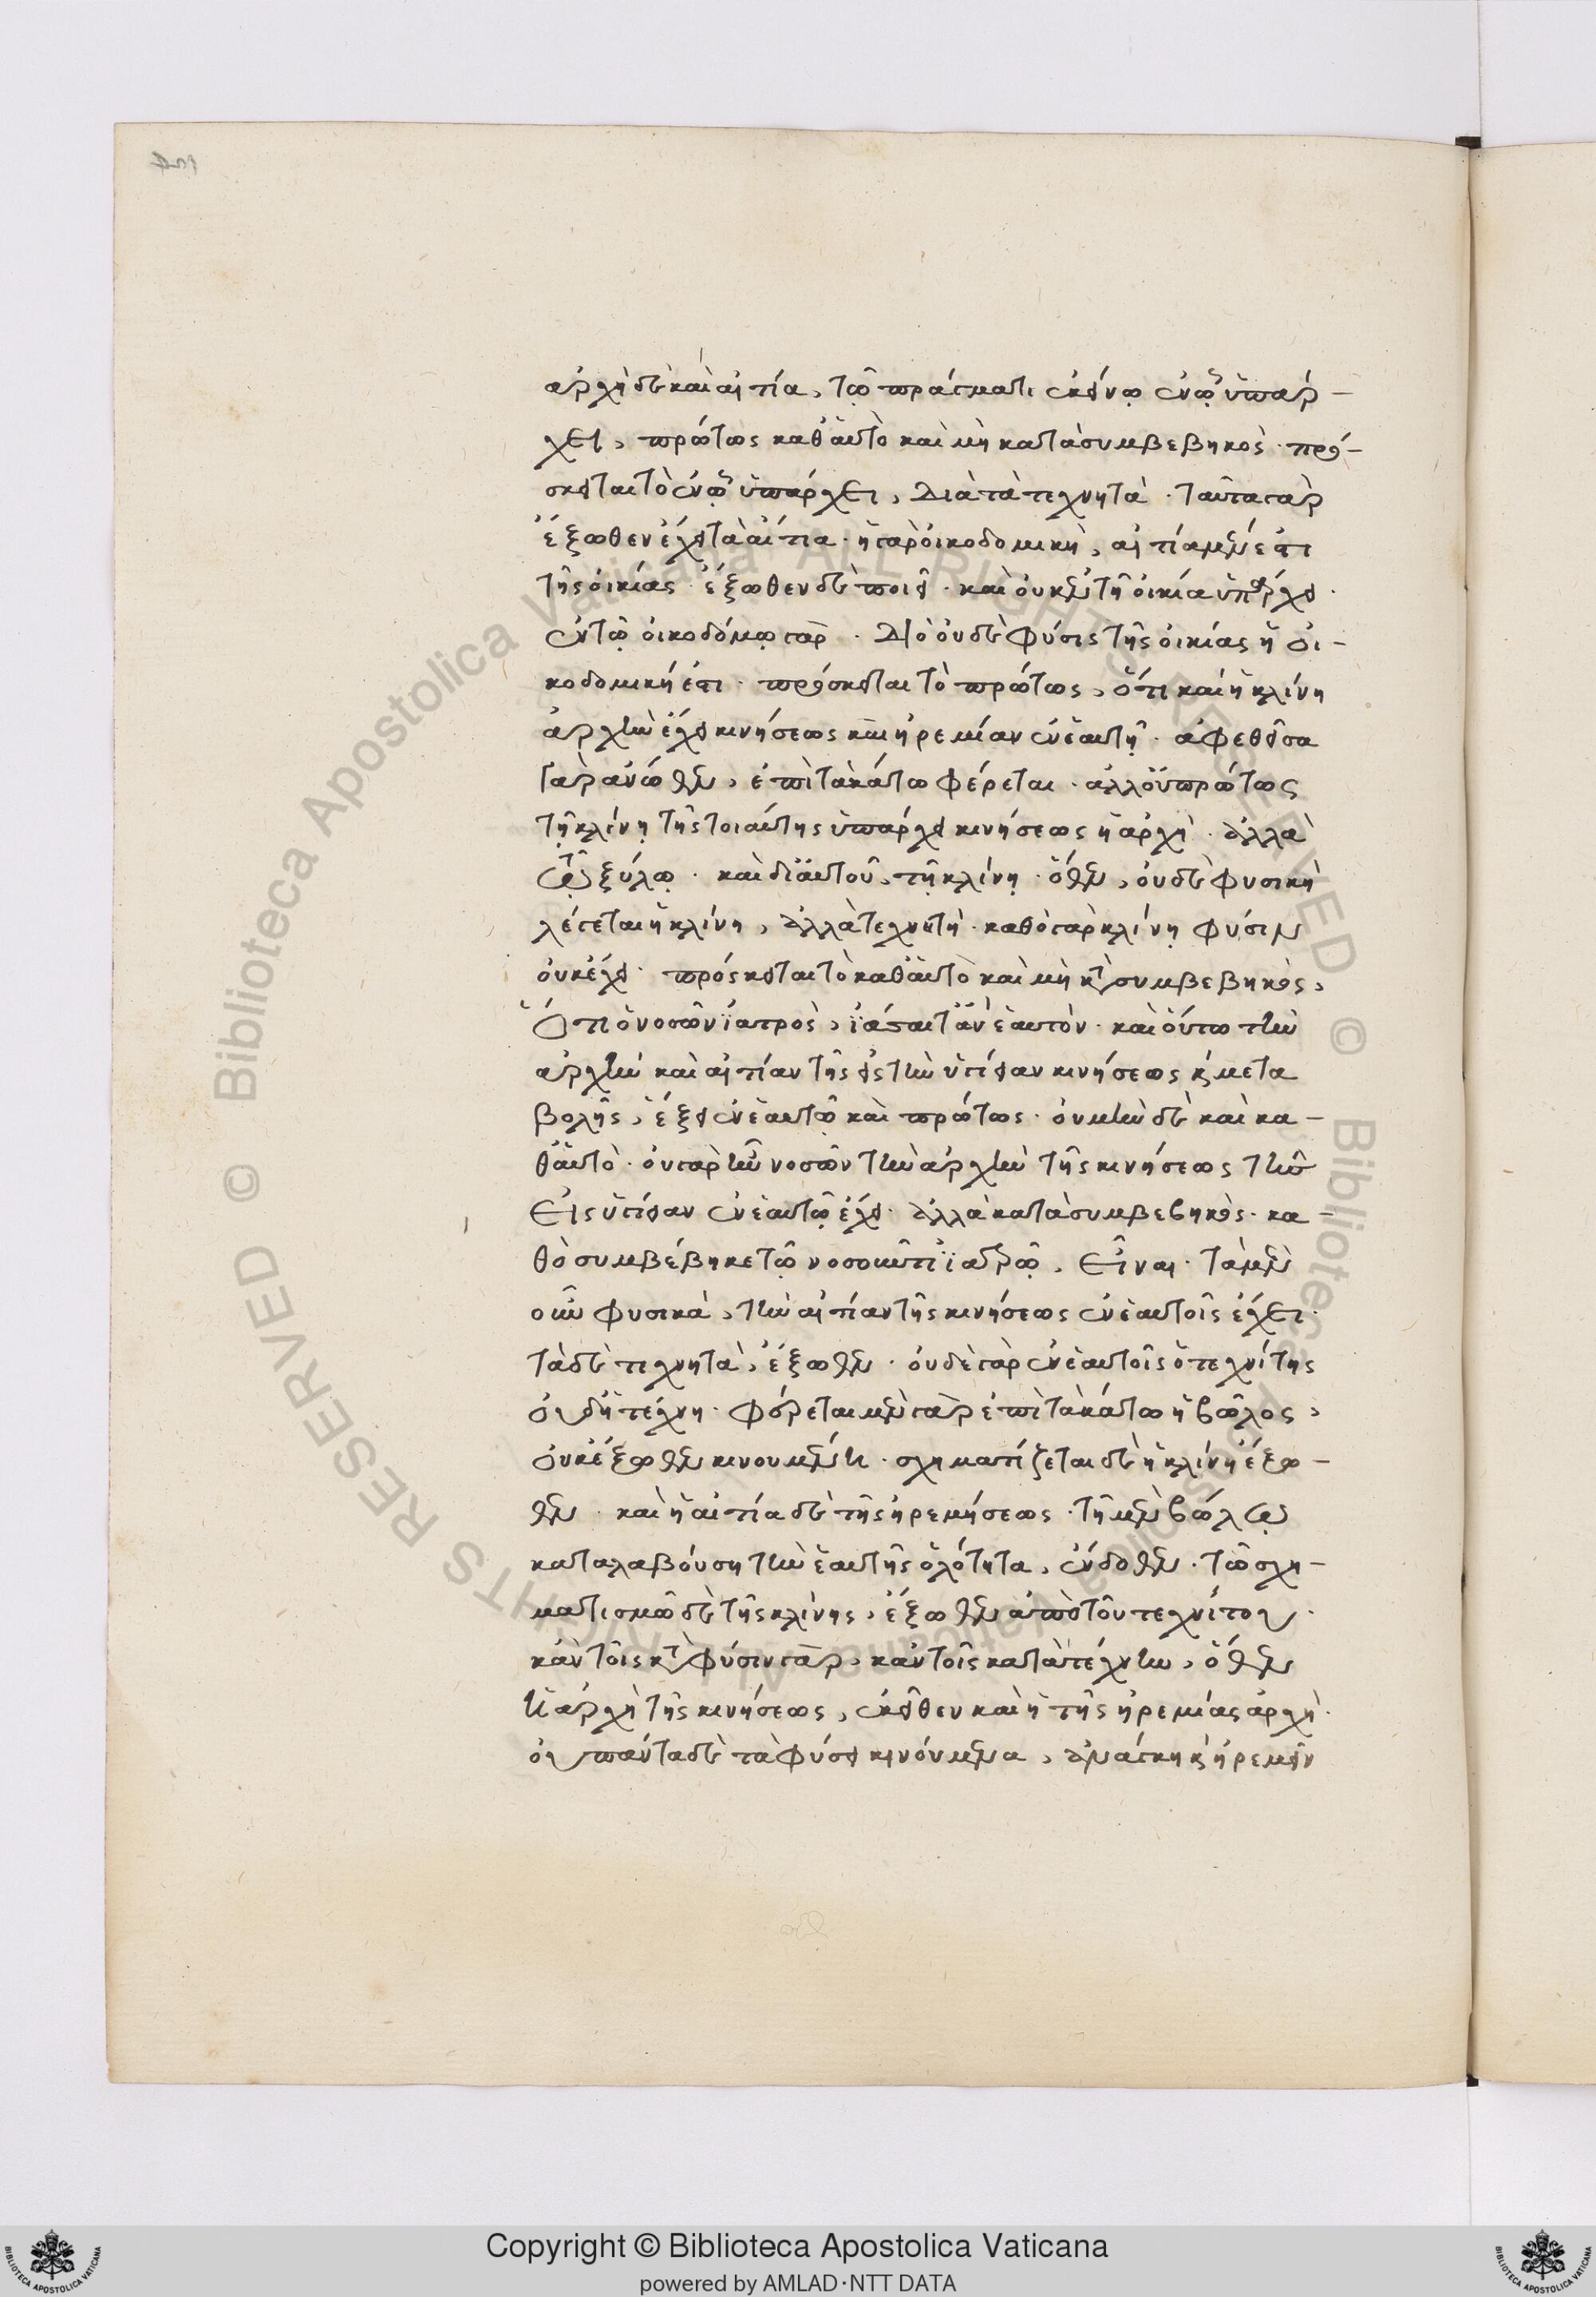 ἀρχὴ δὲ καὶ αἰτία, τῶ πράγματι ἐκείνω ἐν ᾧ ὑπάρ-
χει, πρώτως καθ' αὑτὸ καὶ μὴ κατὰ συμβεβηκός. πρό-
σκειται τὸ ἐν ᾧ ὑπάρχει, διὰ τὰ τεχνητά. ταῦτα γὰρ
ἔξωθεν ἔχει τὰ αἴτια. ἡ γὰρ οἰκοδομικὴ, αἰτία μέν ἐστι
τῆς οἰκίας. ἔξωθεν δὲ ποιεῖ. καὶ οὐκ ἐν τῆ οἰκία ὑπάρχει.
ἐν τῶ οἰκοδόμω γάρ. διὸ οὐδὲ φύσις τῆς οἰκίας ἡ οἰ-
κοδομική ἐστι. πρόσκειται τὸ πρώτως, ὅτι καὶ ἡ κλίνη
ἀρχὴν ἔχει κινήσεως καὶ ἠρεμίαν ἐν ἑαυτῆ. ἀφεθεῖσα
γὰρ ἄνωθεν, ἐπὶ τὰ κάτω φέρεται. ἀλλ' οὐ πρώτως
τῆ κλίνη τῆς τοιαύτης ὑπάρχει κινήσεως ἡ ἀρχή. ἀλλὰ
τῶ ξύλω. καὶ δι' αὐτοῦ, τῆ κλίνη. ὅθεν, οὐδὲ φυσικὴ
λέγεται ἡ κλίνη, ἀλλὰ τεχνητή. καθὸ γὰρ κλίνη φύσιν
οὐκ ἔχει. πρόσκειται τὸ καθ' αὑτὸ καὶ μὴ κατὰ συμβεβηκός,
ὅτι ὁ νοσῶν ἰατρὸς, ἰάσαιτ' ἂν ἑαυτόν. καὶ οὕτω τὴν
ἀρχὴν καὶ αἰτίαν τῆς εἰς τὴν ὑγίειαν κινήσεως καὶ μετα
βολῆς, ἕξει ἐν ἑαυτῶ καὶ πρώτως. οὐ μὴν δὲ καὶ κα-
θ' αὑτό. οὐ γὰρ ᾗ νοσῶν τὴν ἀρχὴν τῆς κινήσεως τῆς
εἰς ὑγίειαν ἐν ἑαυτῶ ἔχει. ἀλλὰ κατὰ συμβεβηκός. κα-
θὸ συμβέβηκε τῶ νοσοῦντι ἰατρῶ, εἶναι. τὰ μὲν
οὖν φυσικὰ, τὴν αἰτίαν τῆς κινήσεως ἐν ἑαυτοῖς ἔχει.
τὰ δὲ τεχνητὰ, ἔξωθεν. οὐδὲ γὰρ ἐν ἑαυτοῖς ὁ τεχνίτης
οὐδ' ἡ τέχνη. φέρεται μὲν γὰρ ἐπὶ τὰ κάτω ἡ βῶλος,
οὐκ ἔξωθεν κινουμένη. σχηματίζεται δὲ ἡ κλίνη ἔξω-
θεν. καὶ ἡ αἰτία δὲ τῆς ἠρεμήσεως. τῆ μὲν βώλω
καταλαβούση τὴν ἑαυτῆς ὁλότητα, ἔνδοθεν. τῶ σχη-
ματισμῶ δὲ τῆς κλίνης, ἔξωθεν ἀπὸ τοῦ τεχνίτου.
κἀν τοῖς κατὰ φύσιν γὰρ, κἀν τοῖς κατὰ τέχνην, ὅθεν
ἡ ἀρχὴ τῆς κινήσεως, ἐκεῖθεν καὶ ἡ τῆς ἠρεμίας ἀρχή.
οὐ πάντα δὲ τὰ φύσει κινούμενα, ἀνάγκη καὶ ἠρεμεῖν